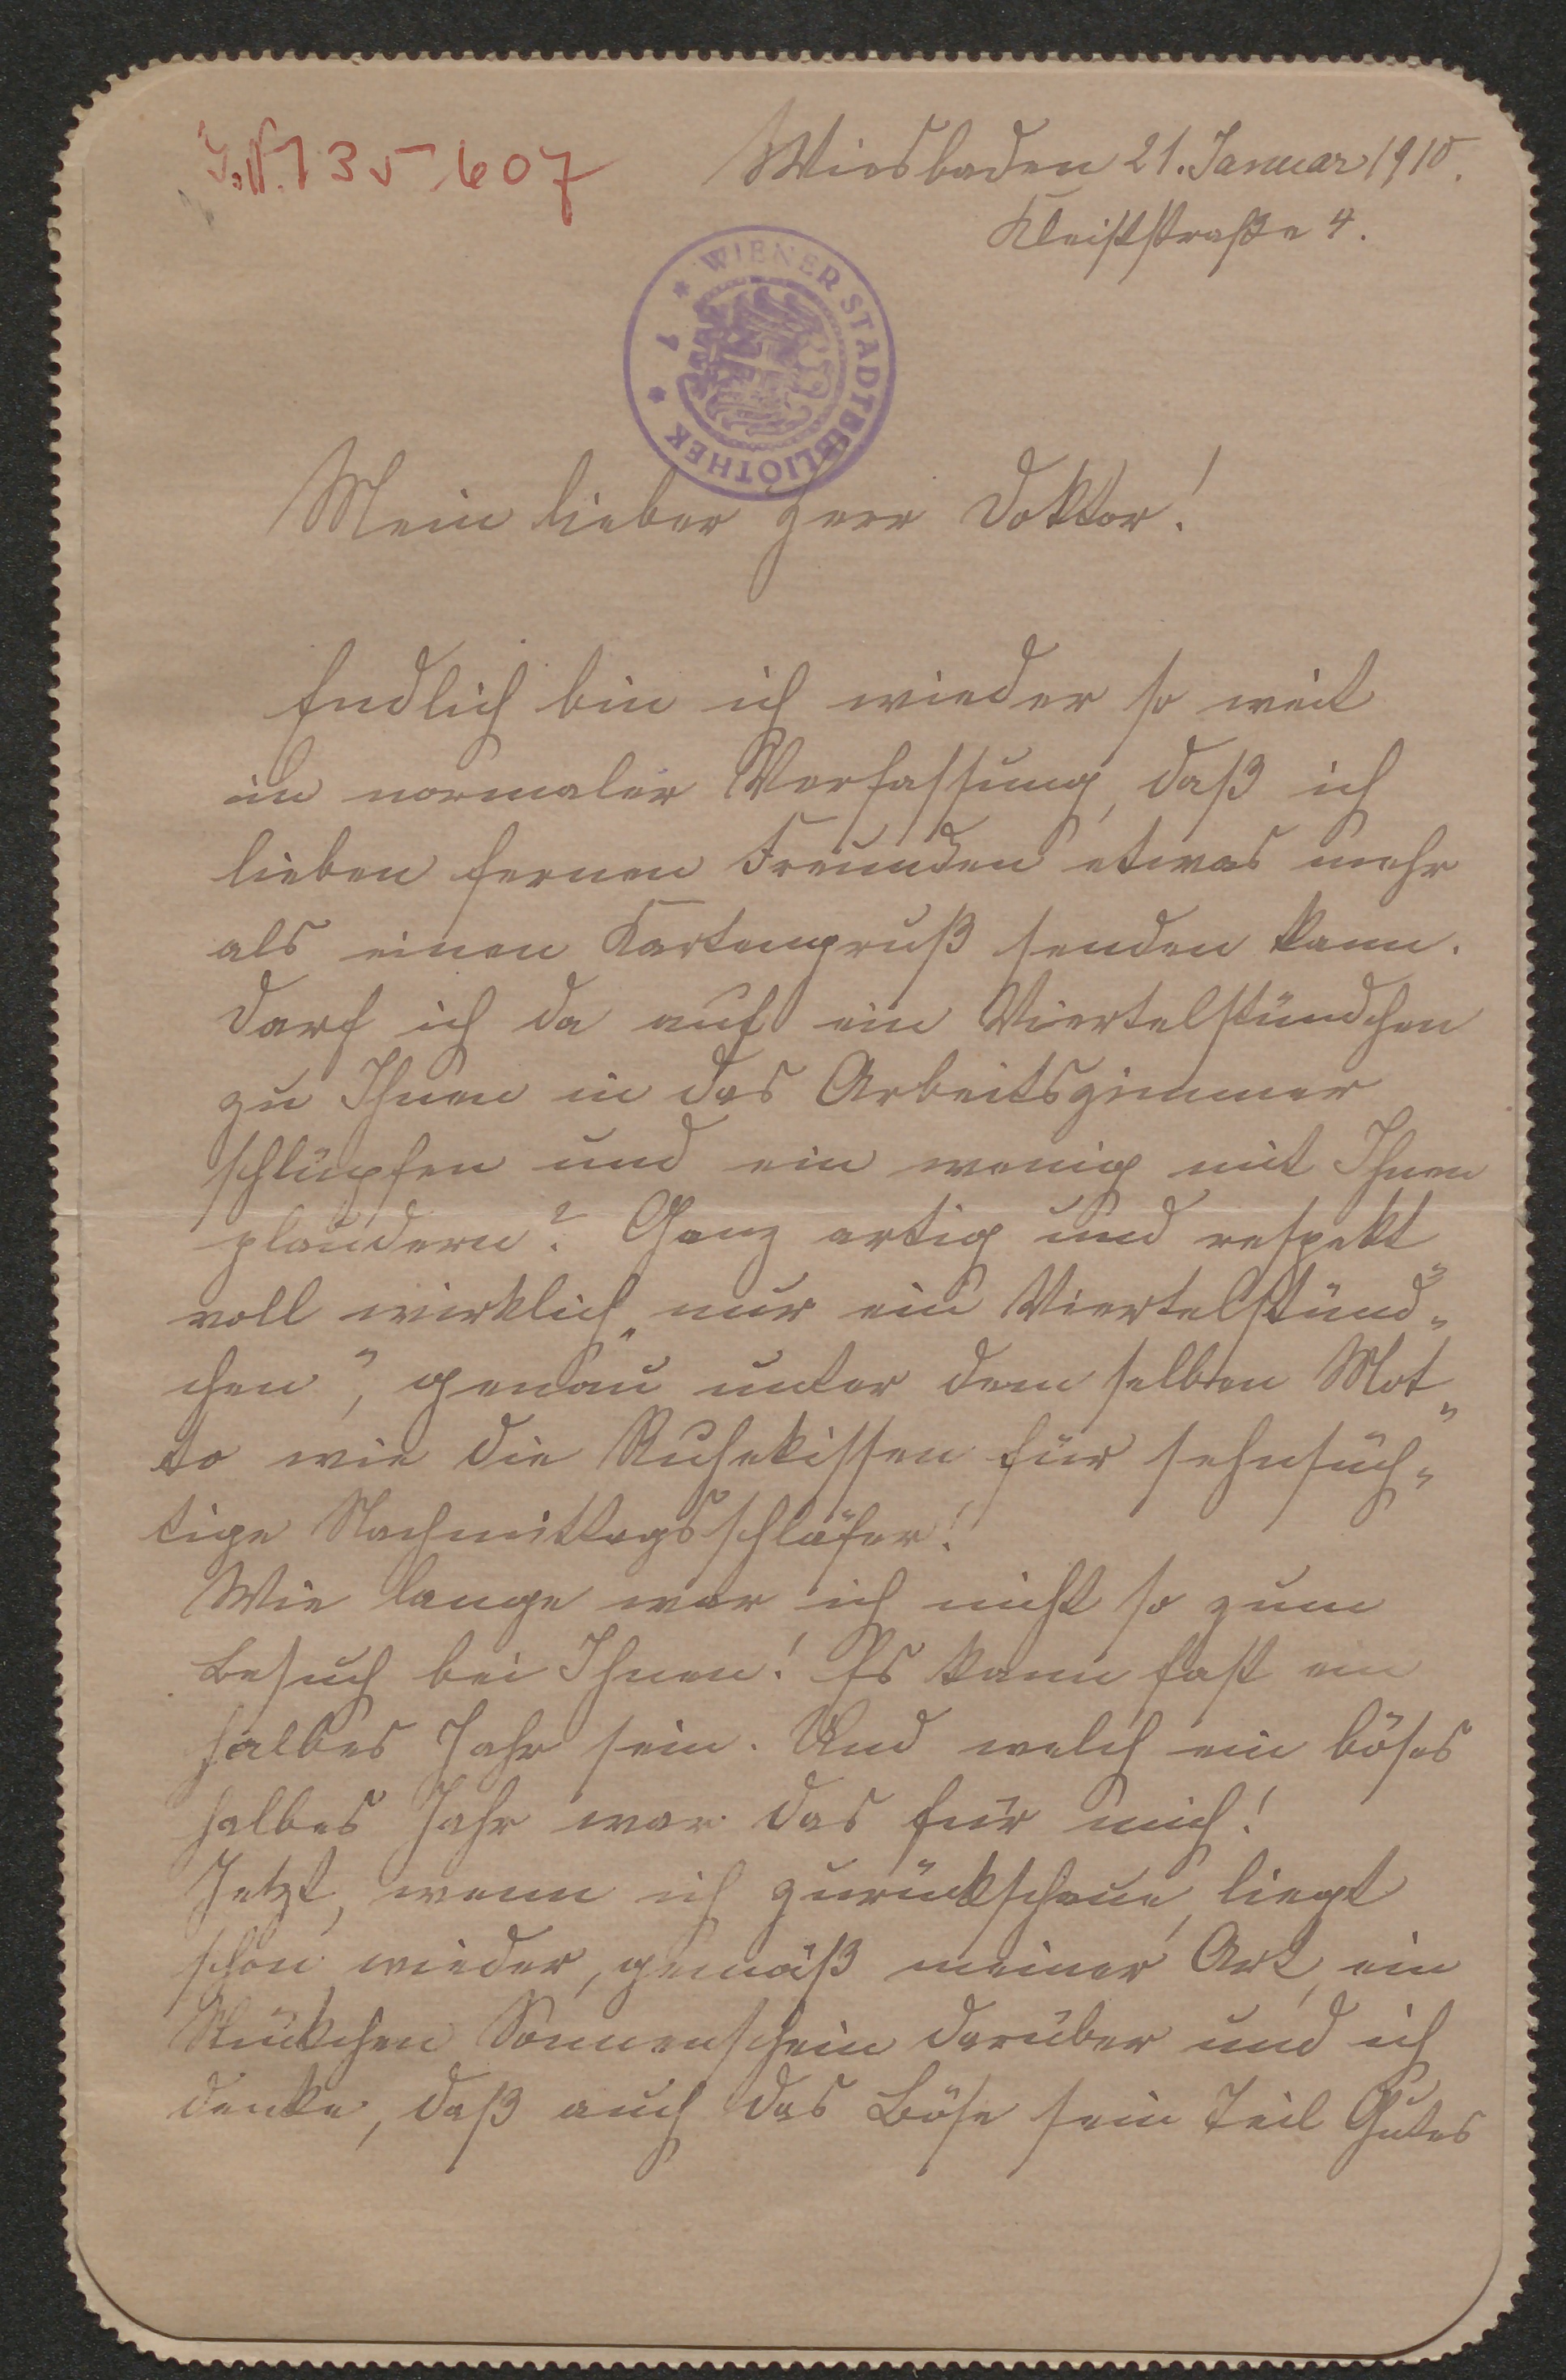 J.N. 135.607
Wiesbaden 21. Januar 1910.
Kleiststraße 4.
* WIENER STADTBIBLIOTHEK * 1
Mein lieber Herr Doktor!
Endlich bin ich wieder so weit
in normaler Verfassung, daß ich
lieben fernen Freunden etwas mehr
als einen Kartengruß senden kann.
Darf ich da auf ein Viertelstündchen
zu Ihnen in das Arbeitszimmer
schlüpfen und ein wenig mit Ihnen
plaudern? Ganz artig und respekt
voll wirklich „nur ein Viertelstünd„
chen“, genau unter dem selben Mot„
to wie die Ruhekissen für sehnsüch„
tige Nachmittagsschläfer!
Wie lange war ich nicht so zum
Besuch bei Ihnen! Es kann fast ein
halbes Jahr sein. Und welch ein böses
halbes Jahr war das für mich!
Jetzt, wenn ich zurückschaue, liegt
schon wieder, gemäß meiner Art, ein
Stückchen Sonnenschein darüber und ich
denke, daß auch das Böse sein Teil Gutes